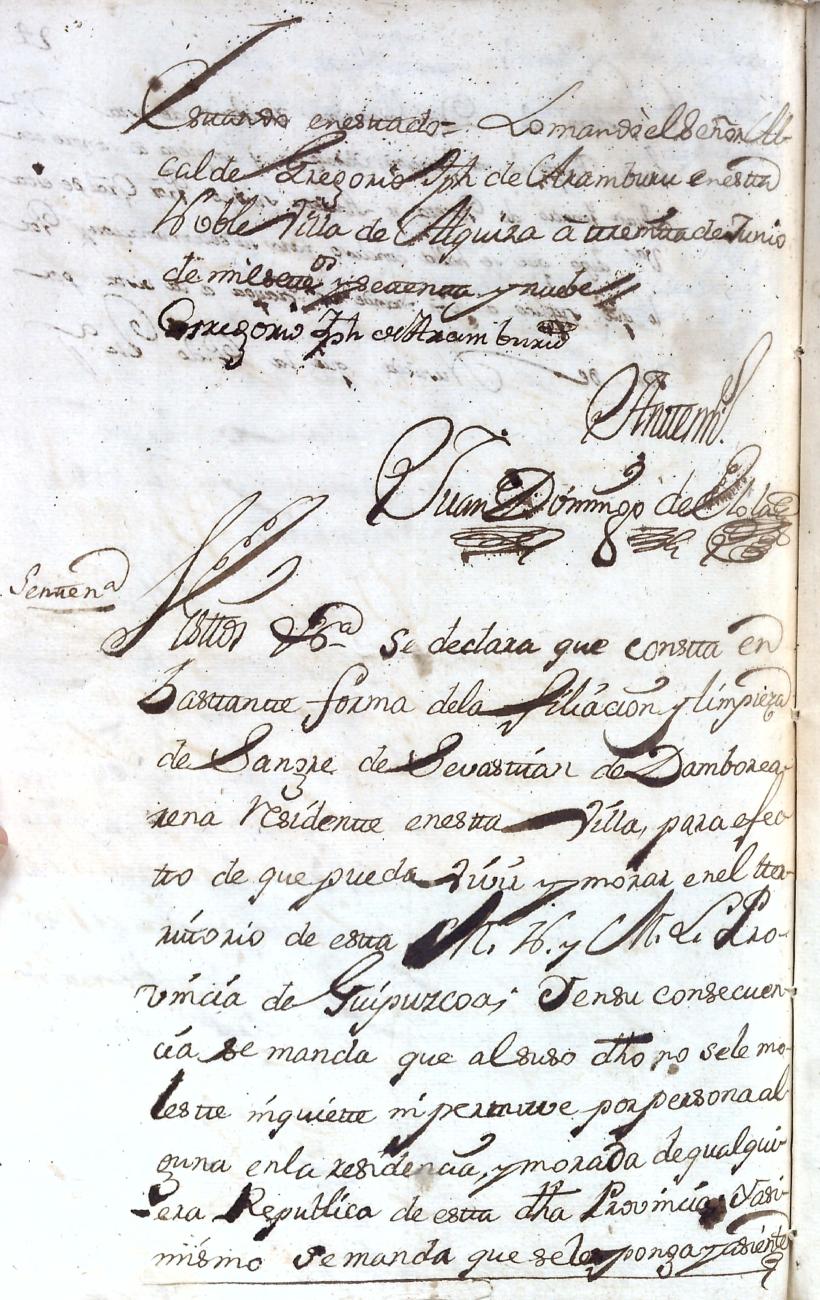 Estando en estado= Lo mandó el Señor Al-
calde Gregorio Jph de Aramburu en esta
Noble Villa de Alquiza a treinta de Junio
de mil sette os y setenta y nuebe
Gregorio Jph de Aramburu
Antemi.
Juan Domingo de
Senten.a
Vistos &.a Se declara que constta en
bastante forma dela filiacion y limpieza
de Sangre de Sevastian de Damborea-
rena Residente en estta Villa, para efec-
tto de que pueda vivir y morar en el tter-
ritorio de estta M. N. y M. L. Pro-
vincia de Guipuzcoa; Y en su consecuen-
cia se manda que al suso dho no se le mo-
lestte inquiette ni perturve por persona al-
guna en la residencia, y morada de qualqui-
era Republica de estta dha Provincia; Y asi-
mismo se manda que se le ponga y asiente